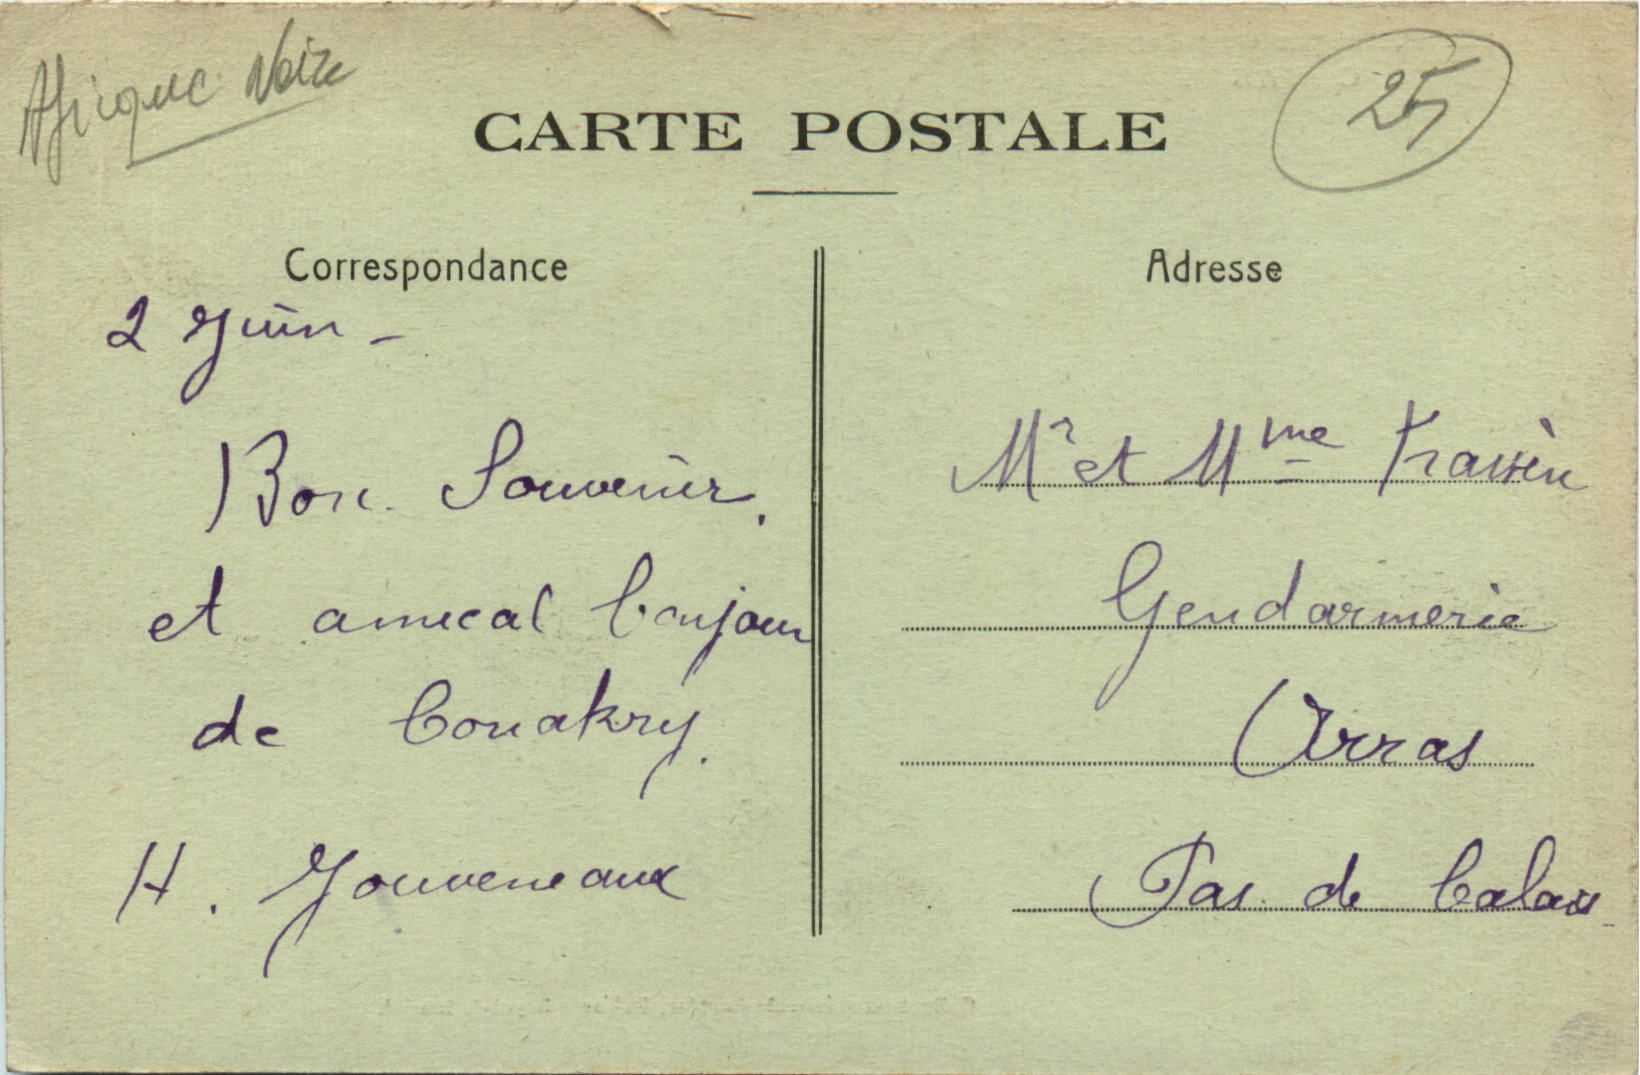 Afrique Noire
25
CARTE POSTALE
Correspondance
2 Juin -
Bon Souvenir.
et amical bonjour
de Conakry.
H. Gouveneaux
Adresse
Mr et Mme
Gendarmerie
Arras
Pas de Calais